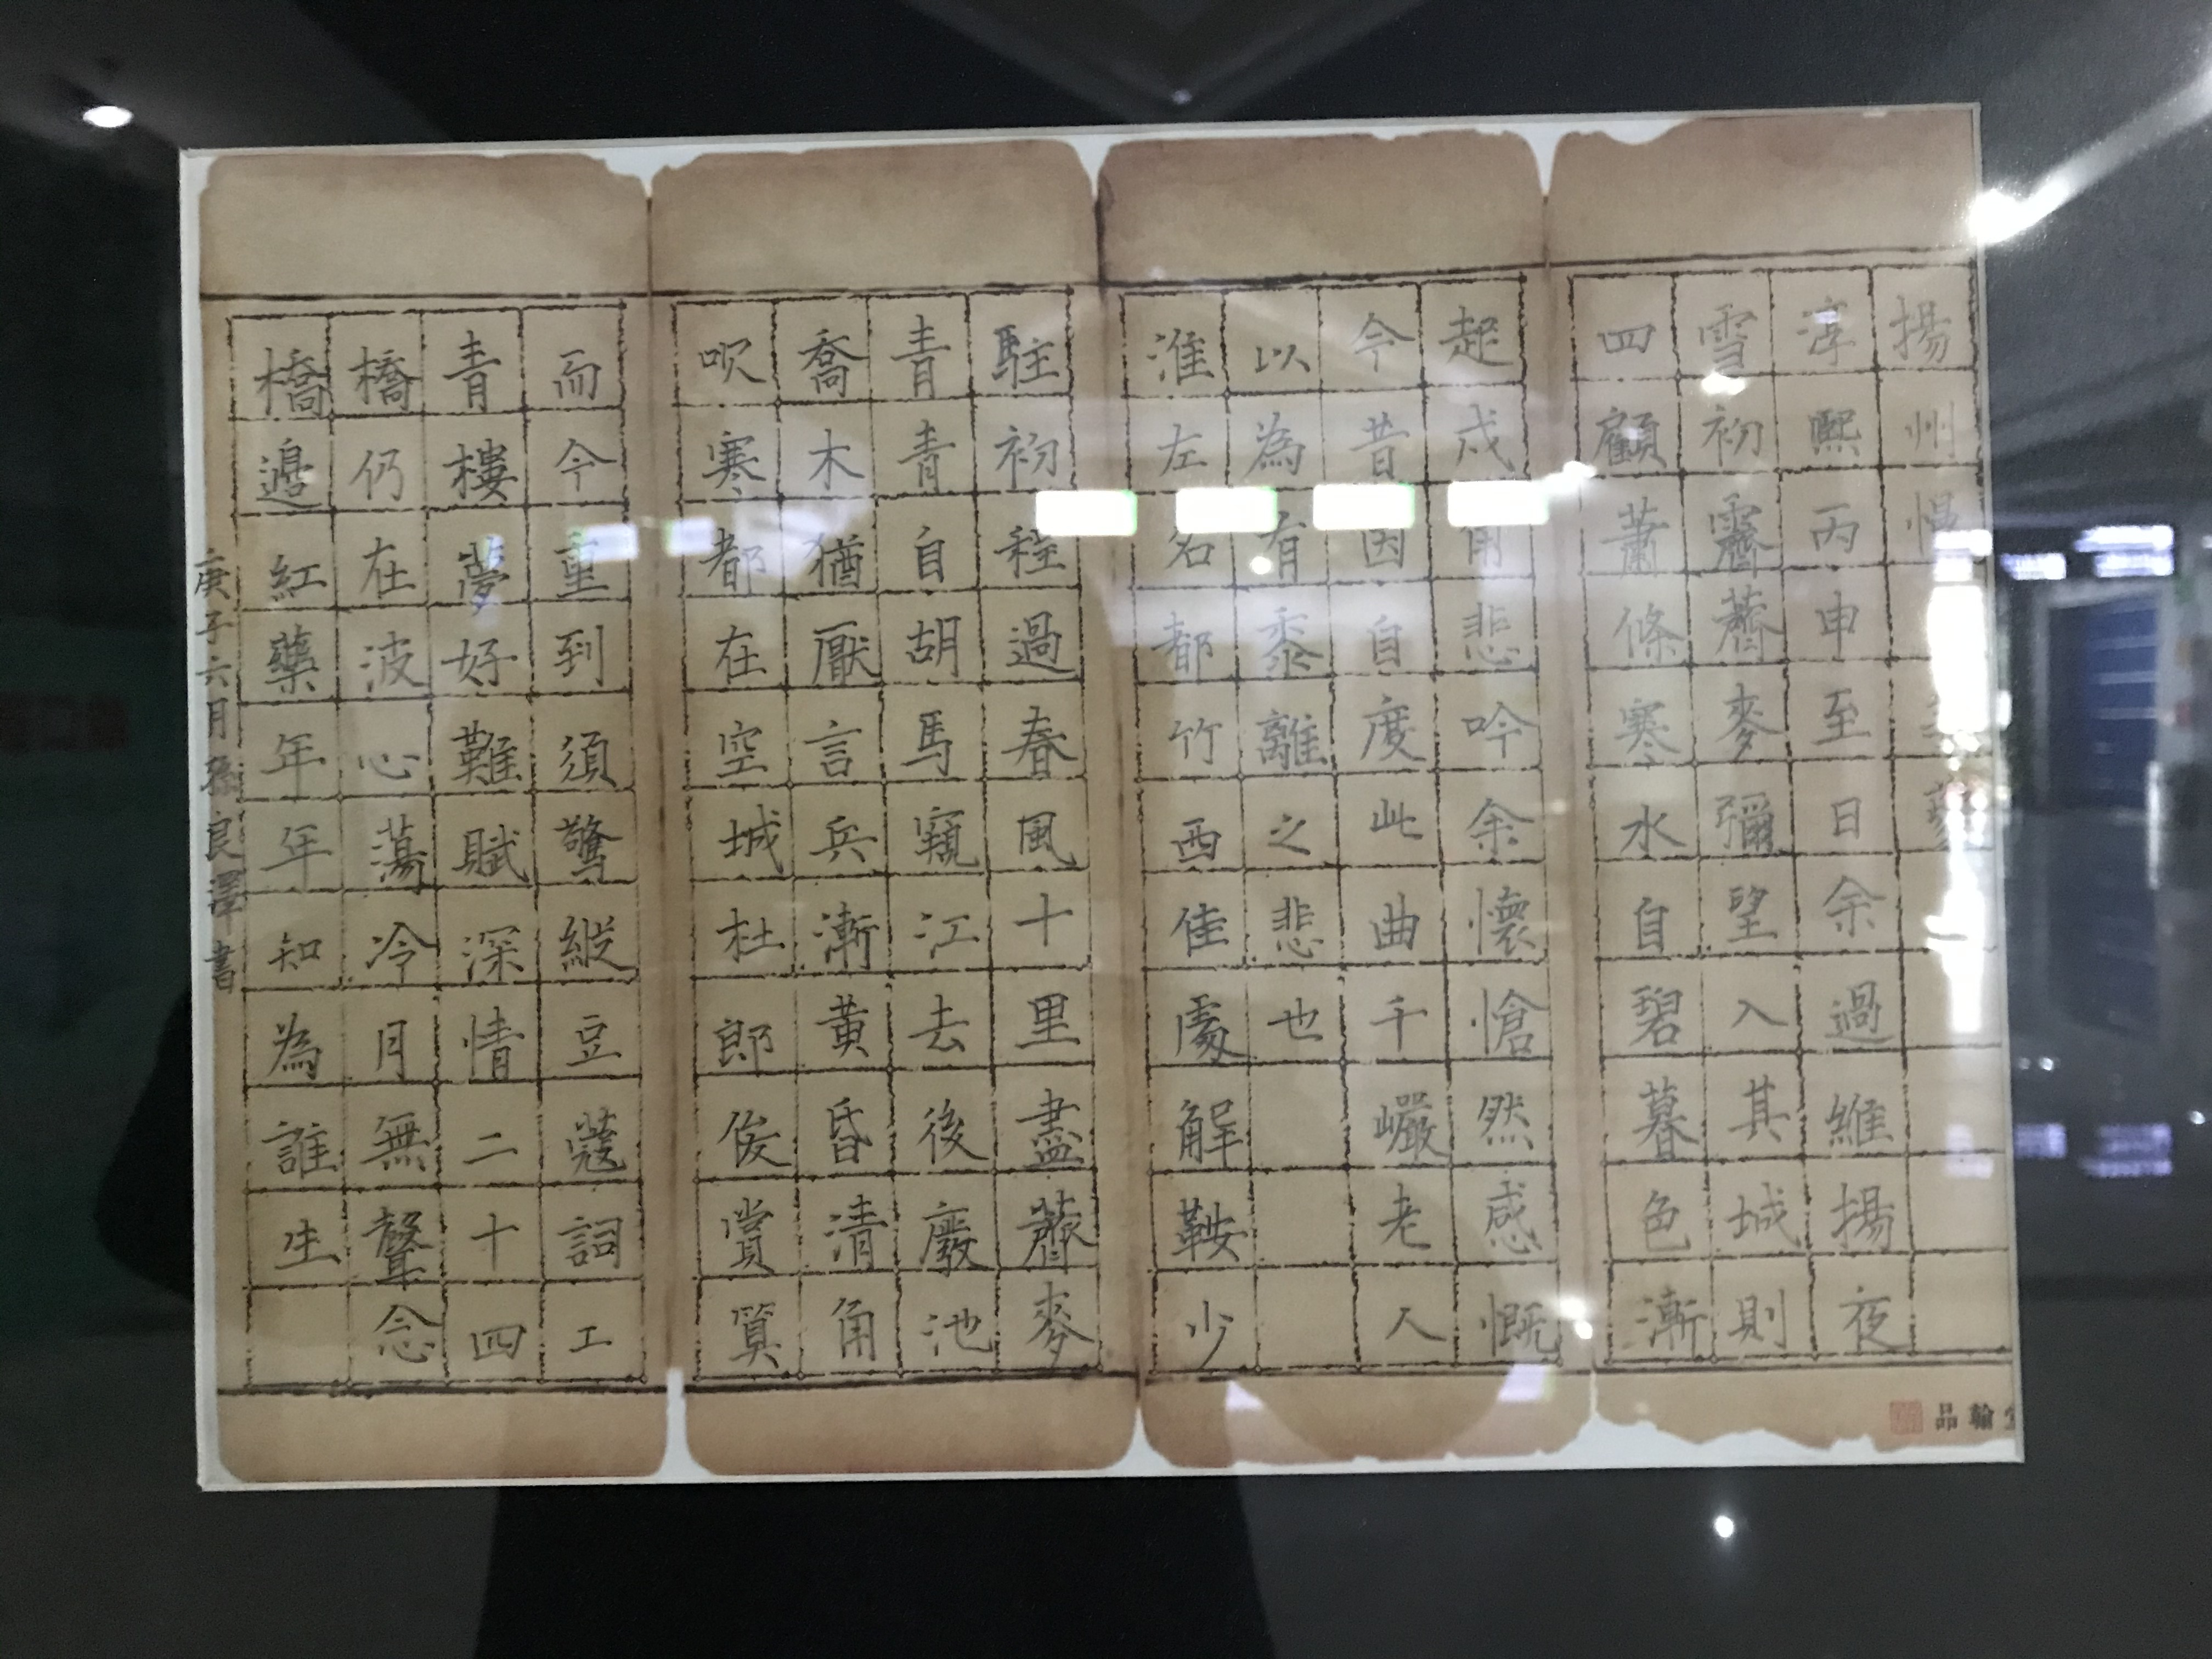 揚州慢姜夔
淳熙丙申至日余過維揚夜
雪初霽薺麥彌望入其城則
四顧蕭條寒水自碧暮色漸
起戍角悲吟余懷愴然感慨
今昔因自度此曲千巗老人
以為有黍離之悲也
淮左名都竹西佳處解鞍少
駐初程過春風十里盡薺麥
青青自胡馬窺江去後廢池
喬木猶厭言兵漸黃昏清角
吹寒都在空城杜郎俊賞算
而今重到須驚縱豆蔻詞工
青樓夢好難賦深情二十四
橋仍在波心蕩冷月無聲念
橋邊紅藥年年知為誰生
庚子六月孫良澤書
品翰